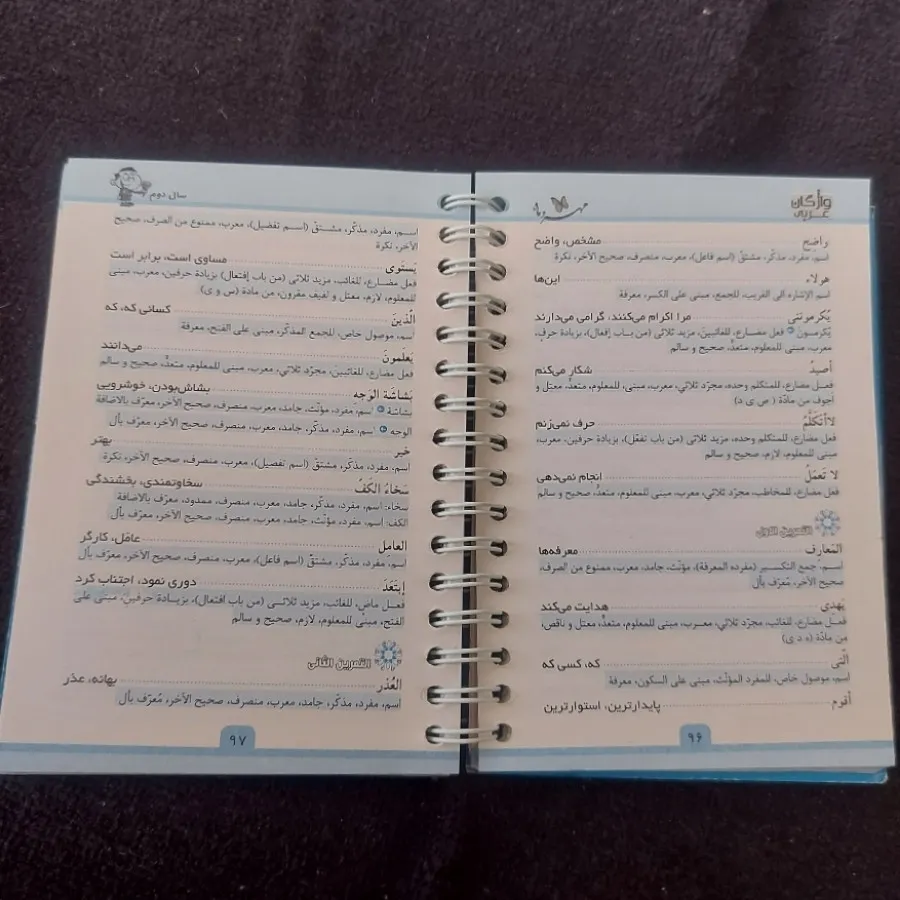 واژگان عربی
مهروماه
واضح ........ مشخص، واضح
اسم، مفرد، مذکّر، مشتقّ (اسم فاعل)، معرب، منصرف، صحیح الآخر، نکرة
هرلاء ........ این‌ها
اسم الإشاره الی القریب، للجمع، مبنی علی الکسر، معرفة
یُکرمونَنی ........ مرا اکرام می‌کنند، گرامی می‌دارند
یُکرمـونَ فعل مضـارع، للغائبیـنَ، مزید ثلاثی (من بـاب إفعال)، بزیادة حرفٍ،
معرب، مبنی للمعلوم، متعدٍّ، صحیح و سالم
أصیدُ ........ شکار می‌کنم
فعـل مضارع، للمتکلم وحده، مجرّد ثلاثي، معرب، مبنی، للمعلوم، متعدٍّ، معتل و
أجوف من مادّة (ص ی د)
لاأتَکَلَّمُ ........ حرف نمی‌زنم
فعل مضارع، للمتکلم وحده، مزید ثلاثی (من باب تفعّل)، بزیادة حرفین، معرب،
مبنی للمعلوم، لازم، صحیح و سالم
لا تَعمَلُ ........ انجام نمی‌دهی
فعل مضارع، للمخاطب، مجرّد ثلاثي، معرب، مبنی للمعلوم، متعدٍّ، صحیح و سالم
التمرین الاول
المَعارف ........ معرفه‌ها
اسم، جمع التکسیر (مفرده المعرفة)، مؤنّث، جامد، معرب، ممنوع من الصرف،
صحیح الآخر، مُعرّف بأل
یَهدی ........ هدایت می‌کند
فعـل مضارع، للغائب، مجرّد ثلاثي، معـرب، مبنی للمعلوم، متعدٍّ، معتل و ناقص،
من مادّة (ه د ی)
الّتی ........ که، کسی که
اسم، موصول خاص، للمفرد المؤنّث، مبنی علی السکون، معرفة
أقوم: ........ پایدارترین، استوارترین
۹۶
سال دوم
اسـم، مفرد، مذکّر، مشتقّ (اسـم تفضیل)، معرب، ممنوع من الصرف، صحیح
الآخر، نکرة
یَستَوی ........ مساوی است، برابر است
فعل مضـارع، للغائب، مزید ثلاثی (من باب إفتعال) بزیادة حرفین، معرب، مبنی
للمعلوم، لازم، معتل و لفیف مقرون، من مادة (س و ی)
الّذینَ ........ کسانی که، که
اسم، موصول خاص، للجمع المذکّر، مبنی علی الفتح، معرفة
یَعلمونَ ........ می‌دانند
فعل مضارع، للغائبین، مجرّد ثلاثي، معرب، مبنی للمعلوم، متعدٍّ، صحیح و سالم
بَشاشَة الوَجه ........ بشاش‌بودن، خوشرویی
بشاشة اسم، مفرد، مؤنّث، جامد، معرب، منصرف، صحیح الآخر، معرّف بالاضافة
الوجه اسم، مفرد، مذکّر، جامد، معرب، منصرف، صحیح الآخر، معرّف بأل
خیر ........ بهتر
اسم، مفرد، مذکّر، مشتقّ (اسم تفضیل)، معرب، منصرف، صحیح الآخر، نکرة
سَخاءُ الکَفّ ........ سخاوتمندی، بخشندگی
سخاء: اسم، مفرد، مذکّر، جامد، معرب، منصرف، ممدود، معرّف بالاضافة
الکف: اسم، مفرد، مؤنّث، جامد، معرب، منصرف، صحیح الآخر، معرّف بأل
العامِل ........ عامل، کارگر
اسم، مفرد، مذکّر، مشتقّ (اسم فاعل)، معرب، منصرف، صحیح الآخر، معرّف بأل
إبتَعَدَ ........ دوری نمود، اجتناب کرد
فعـل ماض، للغائب، مزید ثلاثـی (من باب افتعال)، بزیـادة حرفین، مبنی علی
الفتح، مبنی للمعلوم، لازم، صحیح و سالم
التمرین الثّانی
العُذر ........ بهانه، عذر
اسم، مفرد، مذکّر، جامد، معرب، منصرف، صحیح الآخر، مُعرّف بأل
۹۷